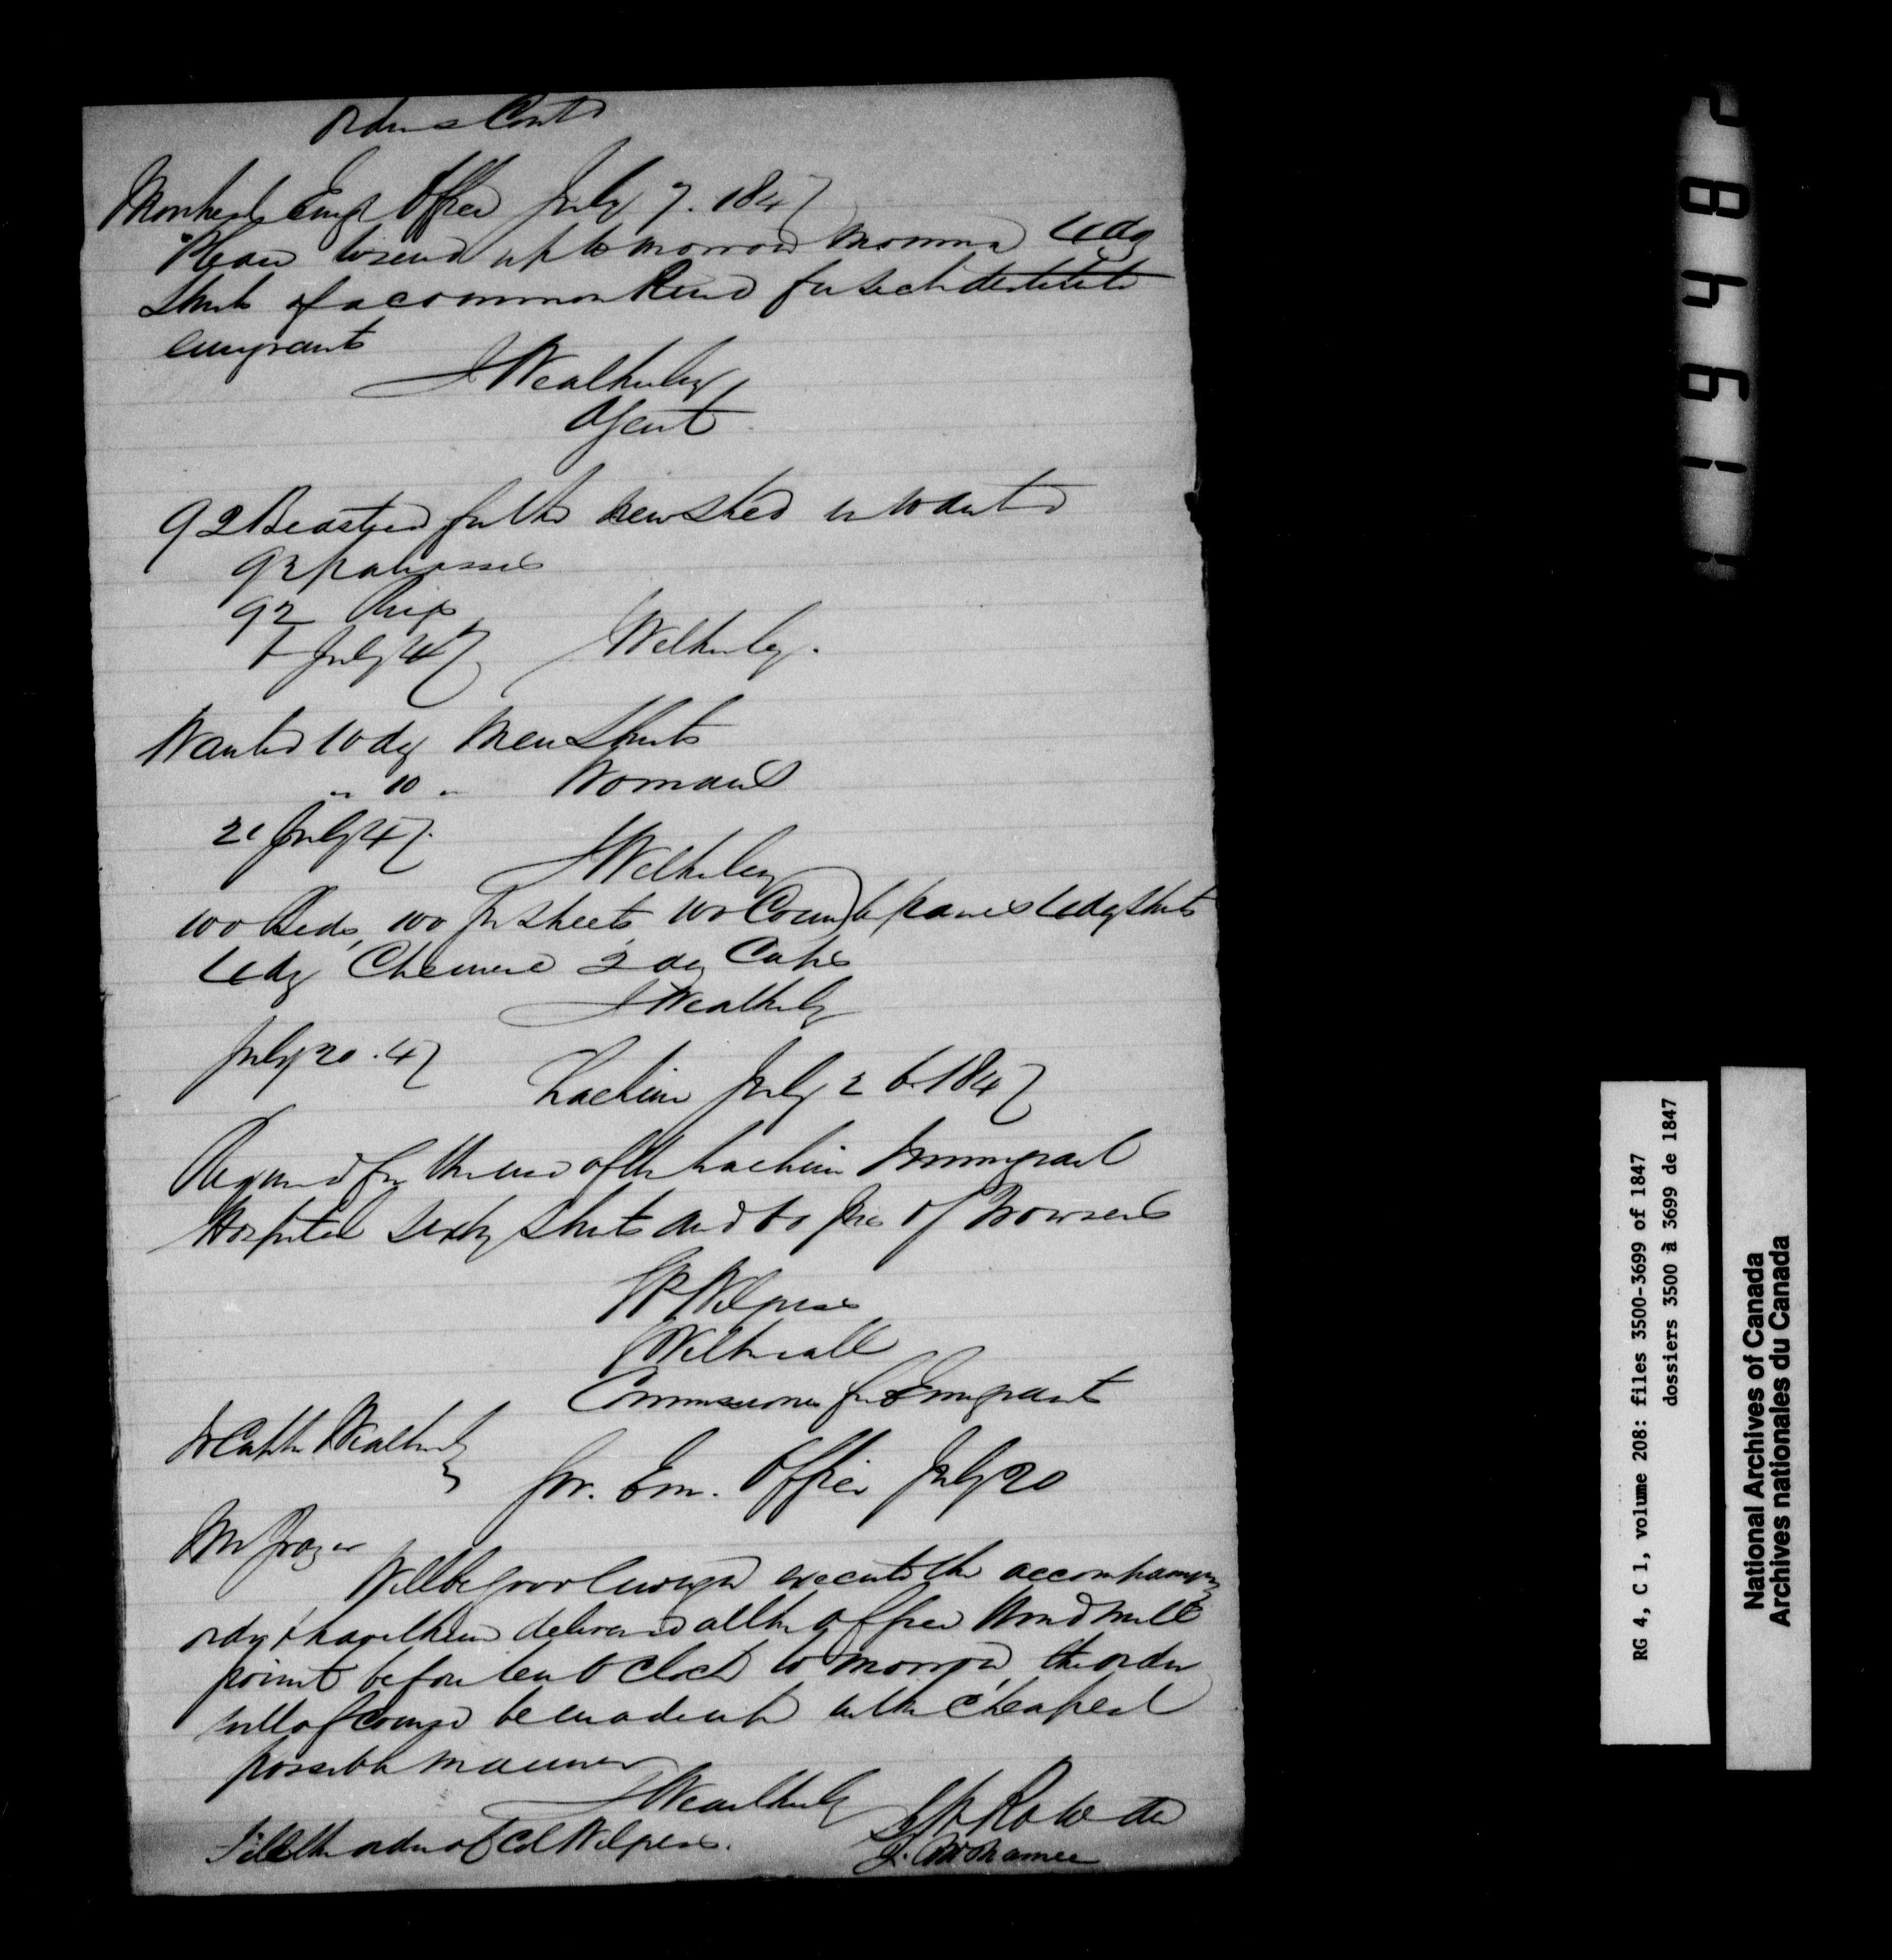 Orders Contd
Montreal Emgt Office July 7. 1847
Please to send up to morrow morning 4 dz
Shirts of a common kind for sick destitute
emigrants
J Weatherley
Agent
92 Bedsteads for the new Shed wanted
92 paliasses
92 Rugs
July 47 J Wetherley.
Wanted 10 dz Men Shirts
" 10 " Womans
21 July 47.
J Wetherley
100 Beds, 100 pr sheets, 100 Counterpanes 4 dz Shirts
4 dz Chemise 2 dz Caps
J Weatherly
July 20. 47
Lachine July 26 1847
Required for the use of the Lachine Immigrant
Hospital Sixty Shirts and 60 prs of Trowsers
Wilgress
Wetherall
Commissioner for Emigrants
To Capt Weatherly
Gov. Em. Office July 20
Mr Frazer
Will be good enough execute the accompanying
order & have them delivered at the office Wind Mill
point before ten o clock to morrow, the order
will of course be made up in the cheapest
possible manner
J Weatherly
Fill the order of Col Wilgress.
16487
RG 4, C 1, volume 208: files 3500-3699 of 1847
dossiers 3500 à 3699 de 1847
National Archives of Canada
Archives nationales du Canada